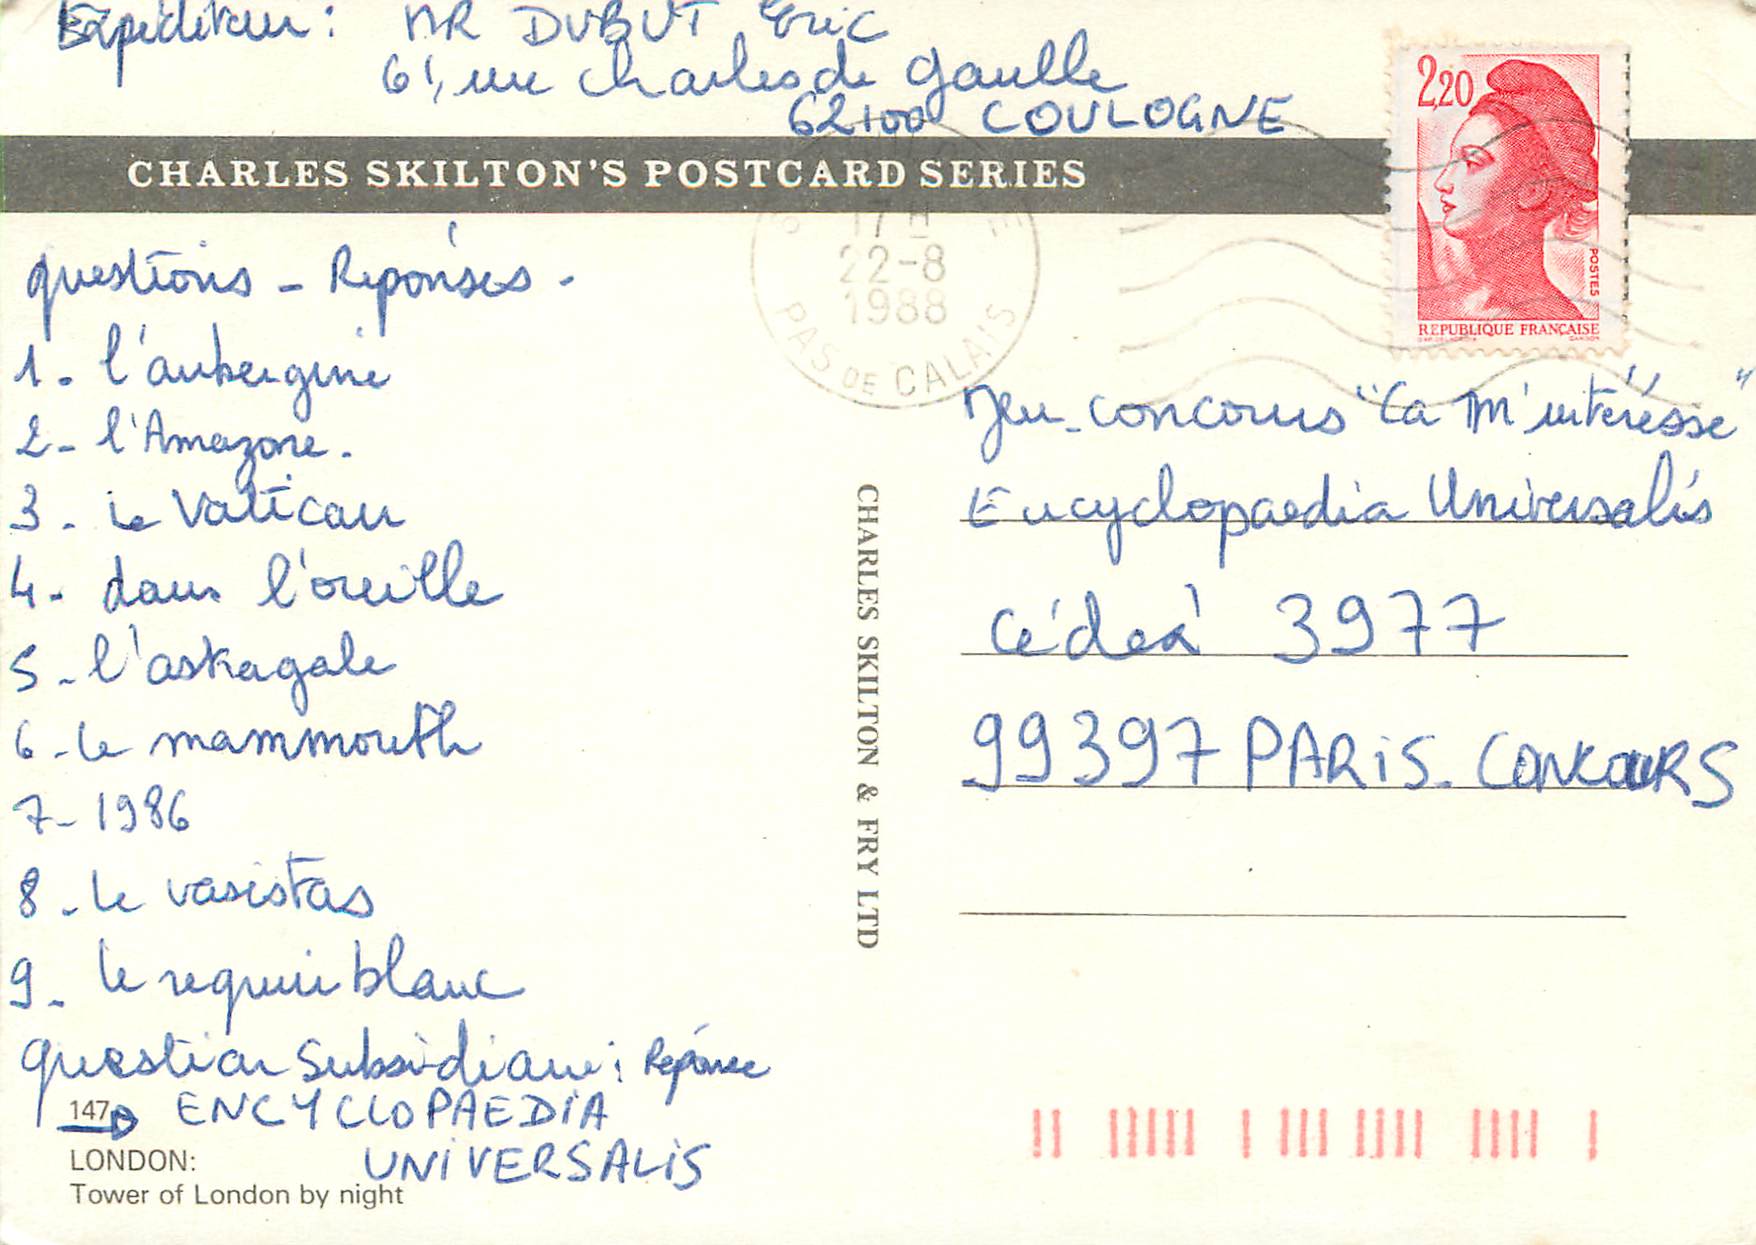 Expéditeur : MR DUBUT Eric
61, rue Charles de Gaulle
62100 COULOGNE
CHARLES SKILTON'S POSTCARD SERIES
2,20
POSTES
REPUBLIQUE FRANÇAISE
17 H
22-8
1988
PAS DE CALAIS
questions - Réponses -
1 - l'aubergine
2 - l'Amazone.
3 - Le Vatican
4 - dans l'oreille
5 - l'astragale
6 - Le mammouth
7 - 1986
8 - Le vasistas
9 - Le requin blanc
question Subsidiaire : Réponse
ENCYCLOPAEDIA
UNIVERSALIS
147
LONDON:
Tower of London by night
CHARLES SKILTON & FRY LTD
Jeu-concours "Ca m'intéresse"
Encyclopaedia Universalis
Cédex 3977
99397 PARIS-CONCOURS